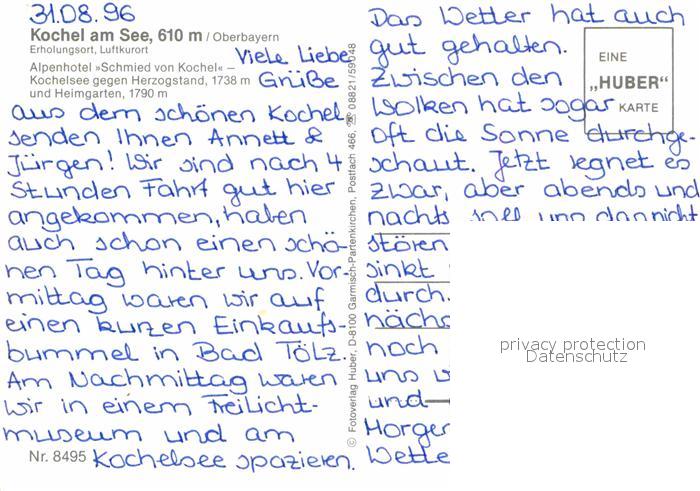 31.08.96
Kochel am See, 610 m / Oberbayern
Erholungsort, Luftkurort
Alpenhotel »Schmied von Kochel« –
Kochelsee gegen Herzogstand, 1738 m
und Heimgarten, 1790 m
Viele Liebe
Grüße
aus dem schönen Kochel
senden Ihnen Annett &
Jürgen! Wir sind nach 4
Stunden Fahrt gut hier
angekommen, haben
auch schon einen schö-
nen Tag hinter uns. Vor-
mittag waren wir auf
einen kurzen Einkaufs-
bummel in Bad Tölz.
Am Nachmittag waren
wir in einem Freilicht-
museum und am
Nr. 8495 Kochelsee spazieren.
© Fotoverlag Huber, D-8100 Garmisch-Partenkirchen, Postfach 466, ☎ 08821/59048
Das Wetter hat auch
gut gehalten.
Zwischen den
Wolken hat sogar
oft die Sonne durchge-
schaut. Jetzt regnet es
zwar, aber abends und
nachts soll uns das nicht
stören
sinkt
durch.
nächs
noch
uns w
und
Morgen
Wette
EINE
„HUBER“
KARTE
privacy protection
Datenschutz